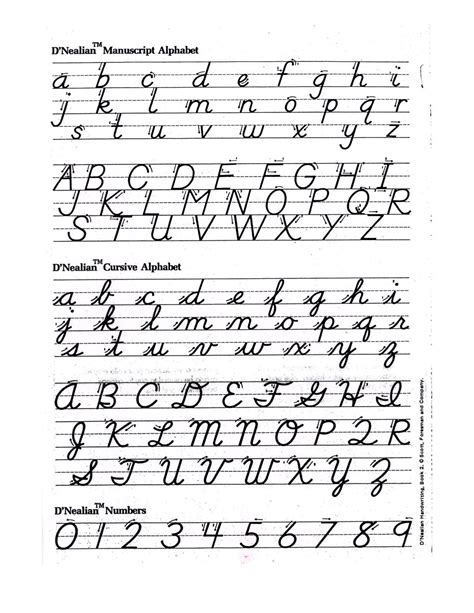 D'Nealian™ Manuscript Alphabet
a b c d e f g h i
j k l m n o p q r
s t u v w x y z
A B C D E F G H I
J K L M N O P Q R
S T U V W X Y Z
D'Nealian™ Cursive Alphabet
a b c d e f g h i
j k l m n o p q r
s t u v w x y z
A B C D E F G H I
J K L M N O P Q R
S T U V W X Y Z
D'Nealian™ Numbers
0 1 2 3 4 5 6 7 8 9
D'Nealian Handwriting, Book 2, © Scott, Foresman and Company.